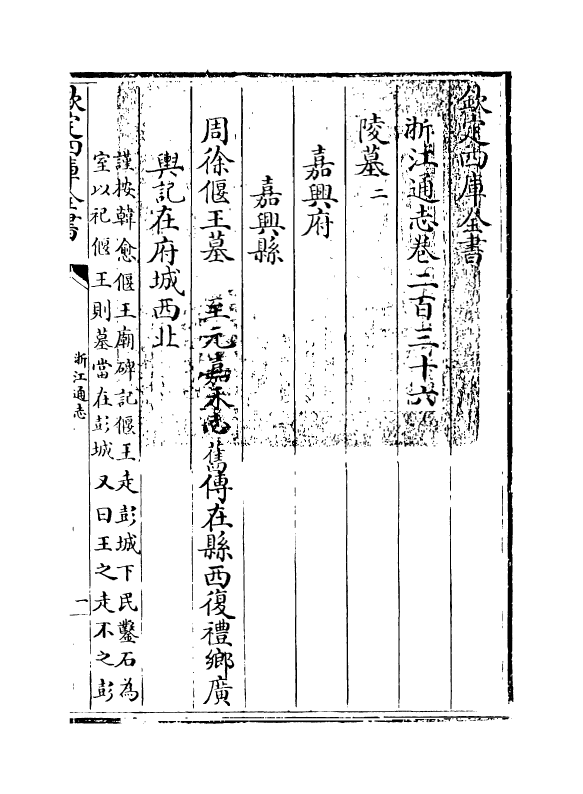 欽定四庫全書
浙江通志卷二百三十六
陵墓二
嘉興府
嘉興縣
周徐偃王墓 至元嘉禾志舊傳在縣西復禮鄉廣
輿記在府城西北
謹按韓愈偃王廟碑記偃王走彭城下民鑿石為
室以祀偃王則墓當在彭城又曰王之走不之彭
欽定四庫全書
浙江通志
一